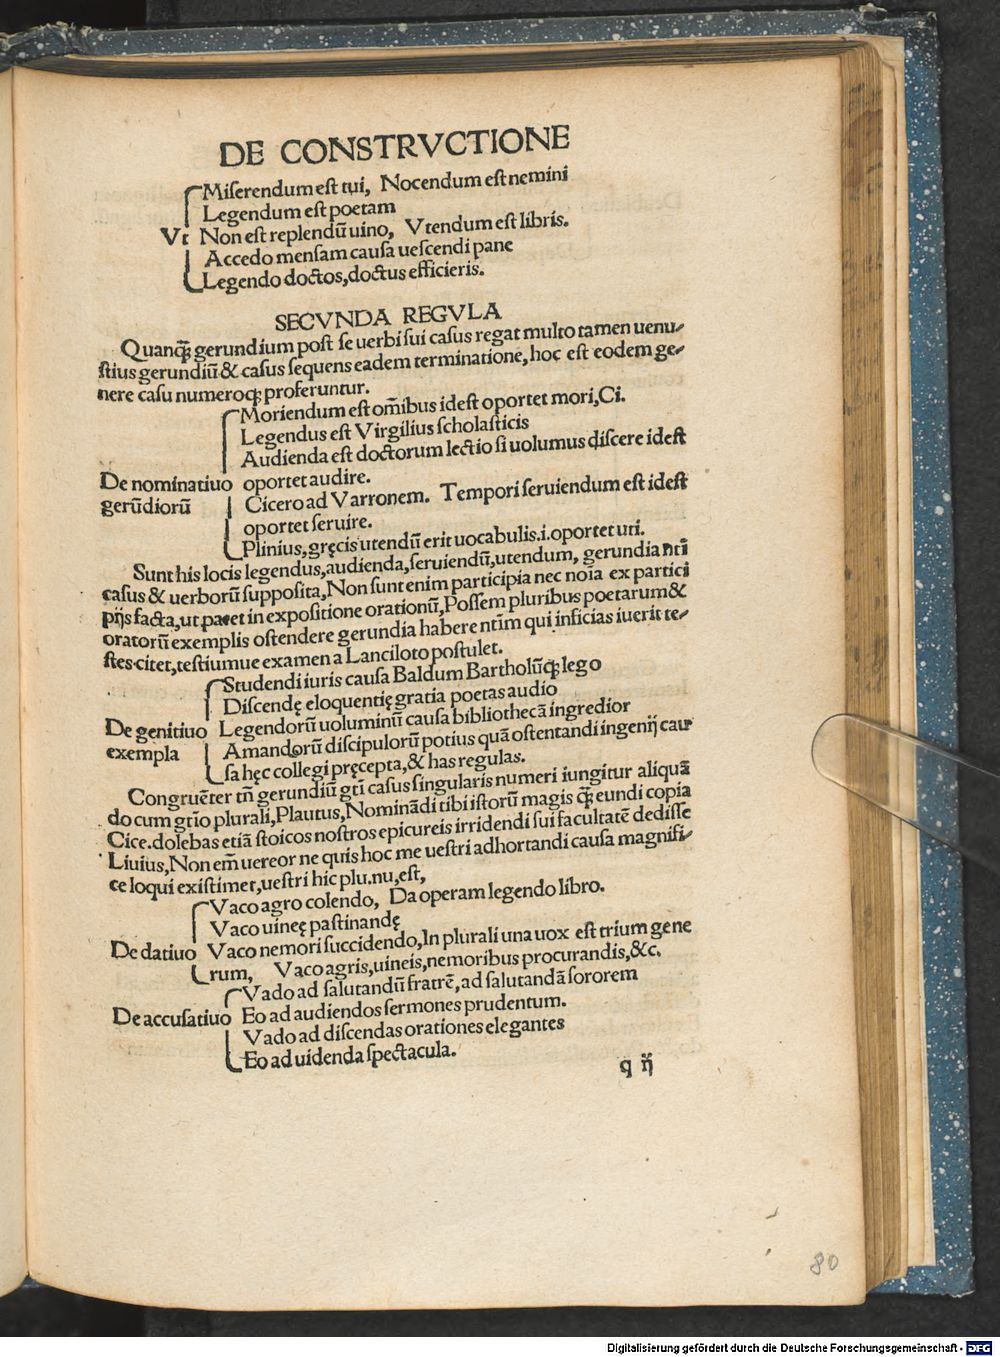 DE CONSTRVCTIONE
Miserendum est tui, Nocendum est nemini
Legendum est poetam
Vt Non est replendũ uino, Vtendum est libris.
Accedo mensam causa uescendi pane
Legendo doctos, doctus efficieris.
SECVNDA REGVLA
Quanq̃ gerundium post se uerbi sui casus regat multo tamen uenu-
stius gerundiũ & casus sequens eadem terminatione, hoc est eodem ge-
nere casu numeroq; proferuntur.
Moriendum est om̃ibus idest oportet mori, Ci.
Legendus est Virgilius scholasticis
Audienda est doctorum lectio si uolumus discere idest
De nominatiuo oportet audire.
gerũdiorũ Cicero ad Varronem. Tempori seruiendum est idest
oportet seruire.
Plinius, gręcis utendũ erit uocabulis.i.oportet uti.
Sunt his locis legendus, audienda, seruiendũ, utendum, gerundia nti
casus & uerborũ supposita, Non sunt enim participia nec noia ex partici
pijs facta, ut patet in expositione orationũ, Possem pluribus poetarum &
oratorũ exemplis ostendere gerundia habere ntim qui inficias iuerit te-
stes citet, testiumue examen a Lanciloto postulet.
Studendi iuris causa Baldum Bartholũq; lego
Discendę eloquentię gratia poetas audio
De genitiuo Legendorũ uoluminũ causa bibliothecã ingredior
exempla Amandorũ discipulorũ potius quã ostentandi ingenij cau
sa hęc collegi pręcepta, & has regulas.
Congruẽter tñ gerundiũ gti casus singularis numeri iungitur aliquã
do cum gtio plurali, Plautus, Nominãdi tibi istorũ magis q̃ eundi copia
Cice. dolebas etiã stoicos nostros epicureis irridendi sui facultatẽ dedisse
Liuius, Non em̃ uereor ne quis hoc me uestri adhortandi causa magnifi-
ce loqui existimet, uestri hic plu.nu, est,
Vaco agro colendo, Da operam legendo libro.
Vaco uineę pastinandę
De datiuo Vaco nemori succidendo, In plurali una uox est trium gene
rum, Vaco agris, uineis, nemoribus procurandis, &c.
Vado ad salutandũ fratrẽ, ad salutandã sororem
De accusatiuo Eo ad audiendos sermones prudentum.
Vado ad discendas orationes elegantes
Eo ad uidenda spectacula.
q ij
80
Digitalisierung gefördert durch die Deutsche Forschungsgemeinschaft - DFG